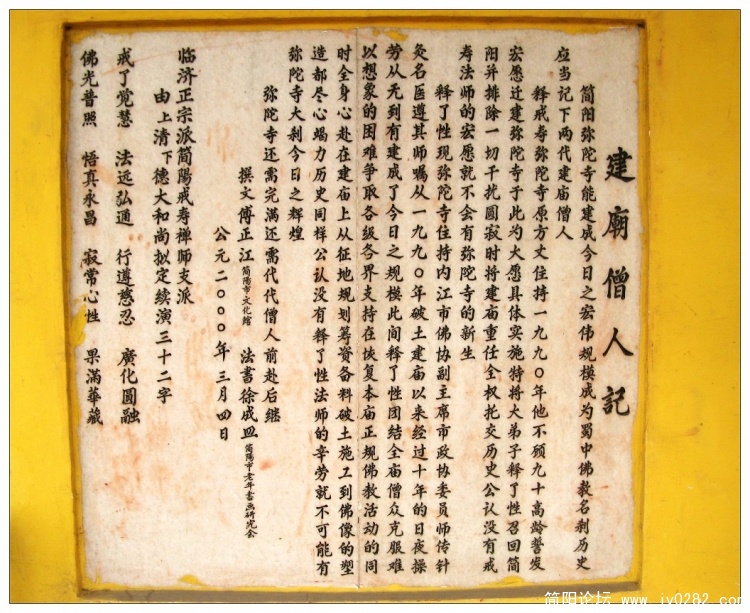 建廟僧人記
简阳弥陀寺能建成今日之宏伟规模成为蜀中佛教名刹历史
应当记下两代建庙僧人
释戒寿弥陀寺原方丈住持一九九0年他不顾九十高龄誓发
宏愿迁建弥陀寺于此为大愿具体实施特将大弟子释了性召回简
阳并排除一切干扰圆寂时将建庙重任全权托交历史公认没有戒
寿法师的宏愿就不会有弥陀寺的新生
释了性现弥陀寺住持内江市佛协副主席市政协委员师传针
灸名医遵其师嘱从一九九0年破土建庙以来经过十年的日夜操
劳从无到有建成了今日之规模此间释了性团结全庙僧众克服难
以想象的困难争取各级各界支持在恢复本庙正规佛教活动的同
时全身心赴在建庙上从征地规划筹资备料破土施工到佛像的塑
造都尽心竭力历史同样公认没有释了性法师的辛劳就不可能有
弥陀寺大刹今日之辉煌
弥陀寺还需完满还需代代僧人前赴后继
撰文傅正江简陽市文化館 法書徐成皿简陽市老年書画研究会
公元二000年三月四日
临济正宗派简陽戒寿禅师支派
由上清下德大和尚拟定续演三十二字
戒了觉慧 法远弘通 行遵慈忍 廣化圆融
佛光普照 悟真永昌 寂常心性 果满華藏
简阳论坛 www.jy0282.com